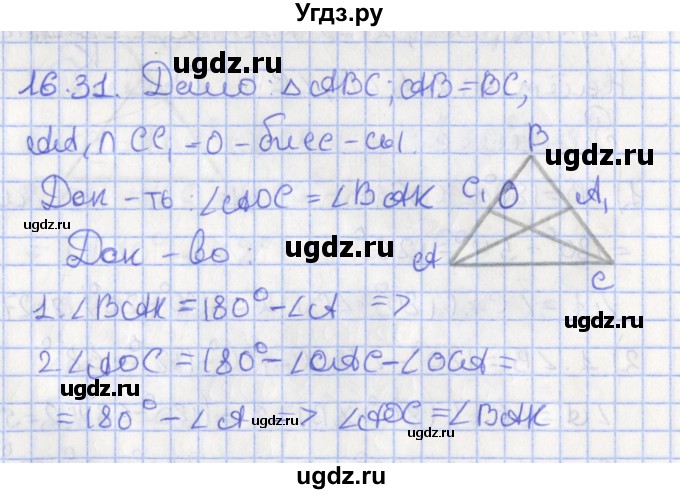 Угдз.ру
16.31. Дано: △ABC; AB=BC;
AA₁∩CC₁=O - бисс-сы.
Док-ть: ∠AOC = ∠BAK
Док-во:
1. ∠BAK = 180° - ∠A =>
2. ∠AOC = 180° - ∠OAC - ∠OCA =
= 180° - ∠A => ∠AOC = ∠BAK
B
C₁ O A₁
A
C
ugdz.ru
ugdz.ru
ugdz.ru
ugdz.ru
ugdz.ru
ugdz.ru
ugdz.ru
ugdz.ru
ugdz.ru
ugdz.ru
ugdz.ru
ugdz.ru